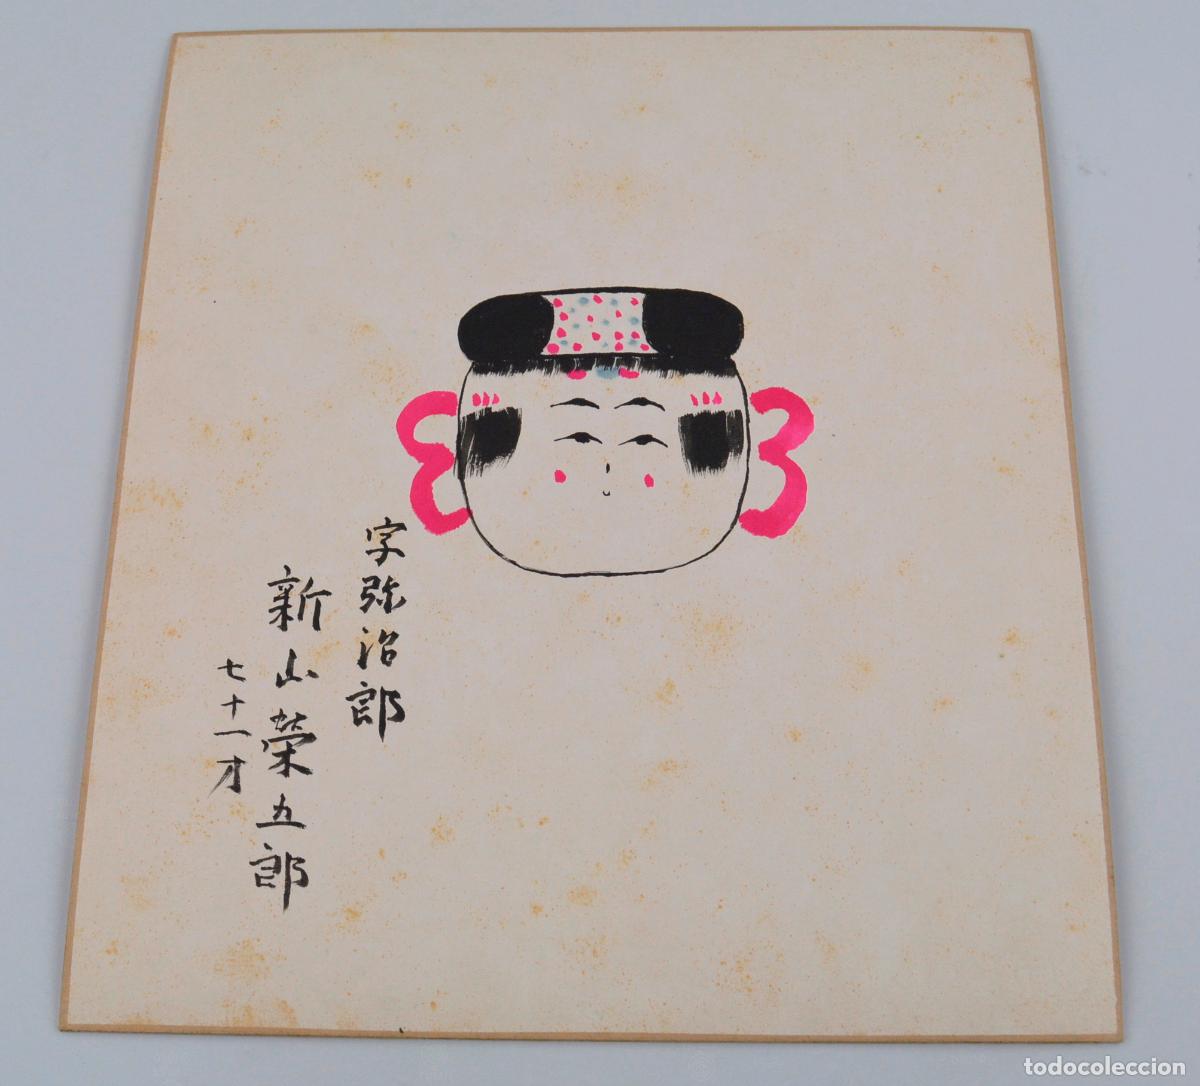 字弥治郎
新山榮五郎
七十一才
todocoleccion